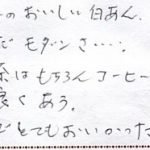 のおいしい白あん。
だ モダンさ…。
茶はもちろんコーヒー
良くあう。
でとてもおいかった